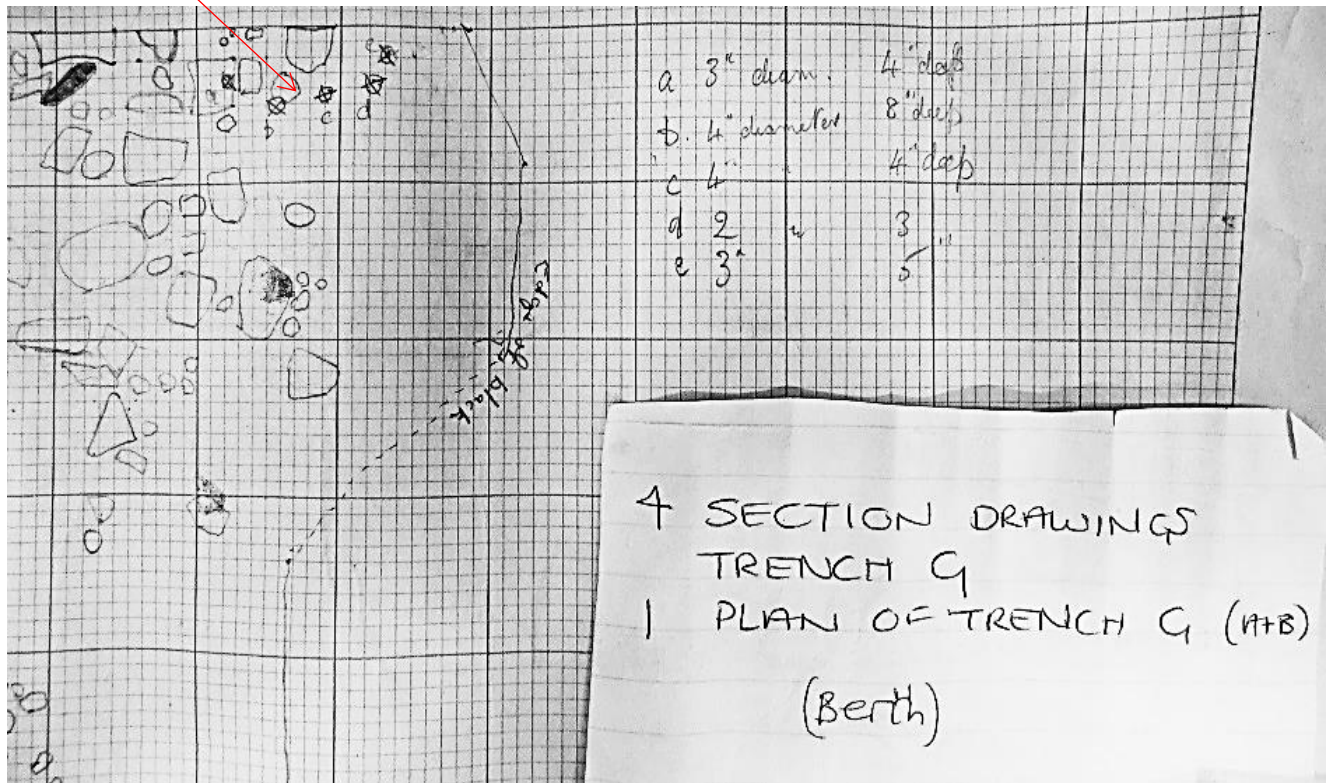 e
b
c
d
a 3" diam. 4" deep
b. 4" diameter 8" deep
c 4" " 4" deep
d 2 " 3
e 3" 5 "
Edge of black
4 SECTION DRAWINGS
TRENCH G
1 PLAN OF TRENCH G (A+B)
(Berth)